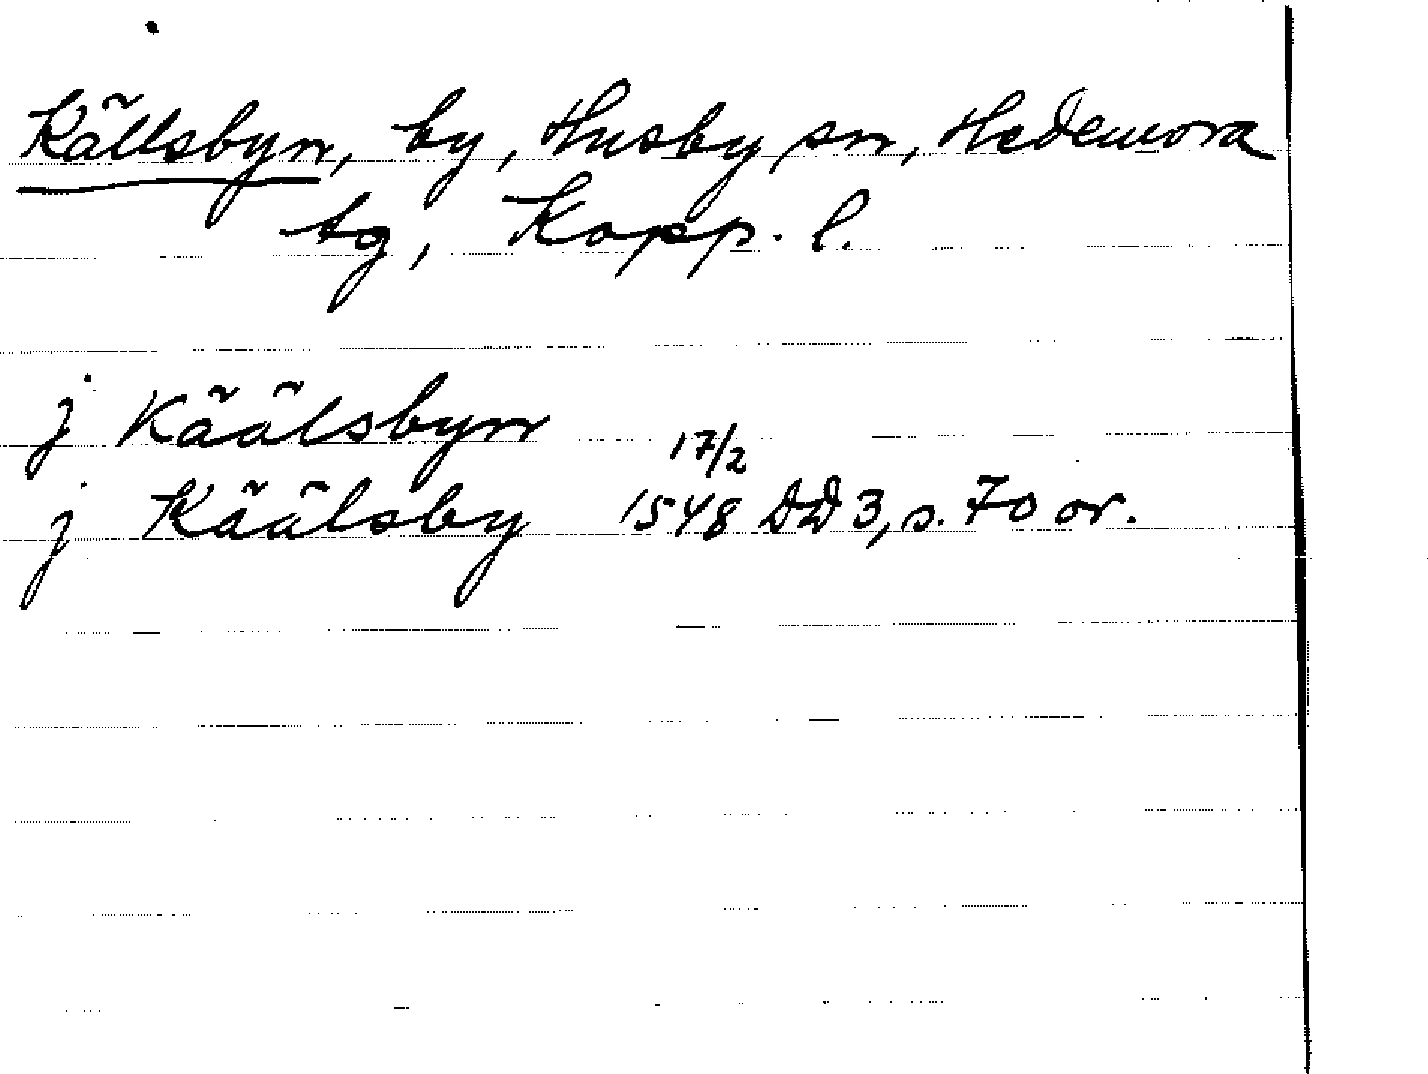 Källsbyn, by, Husby sn, Hedemora
tg, Kopp. l.
j Käälsbyn
17/2
j Käälsby 1548 DD 3, s. 70 or.